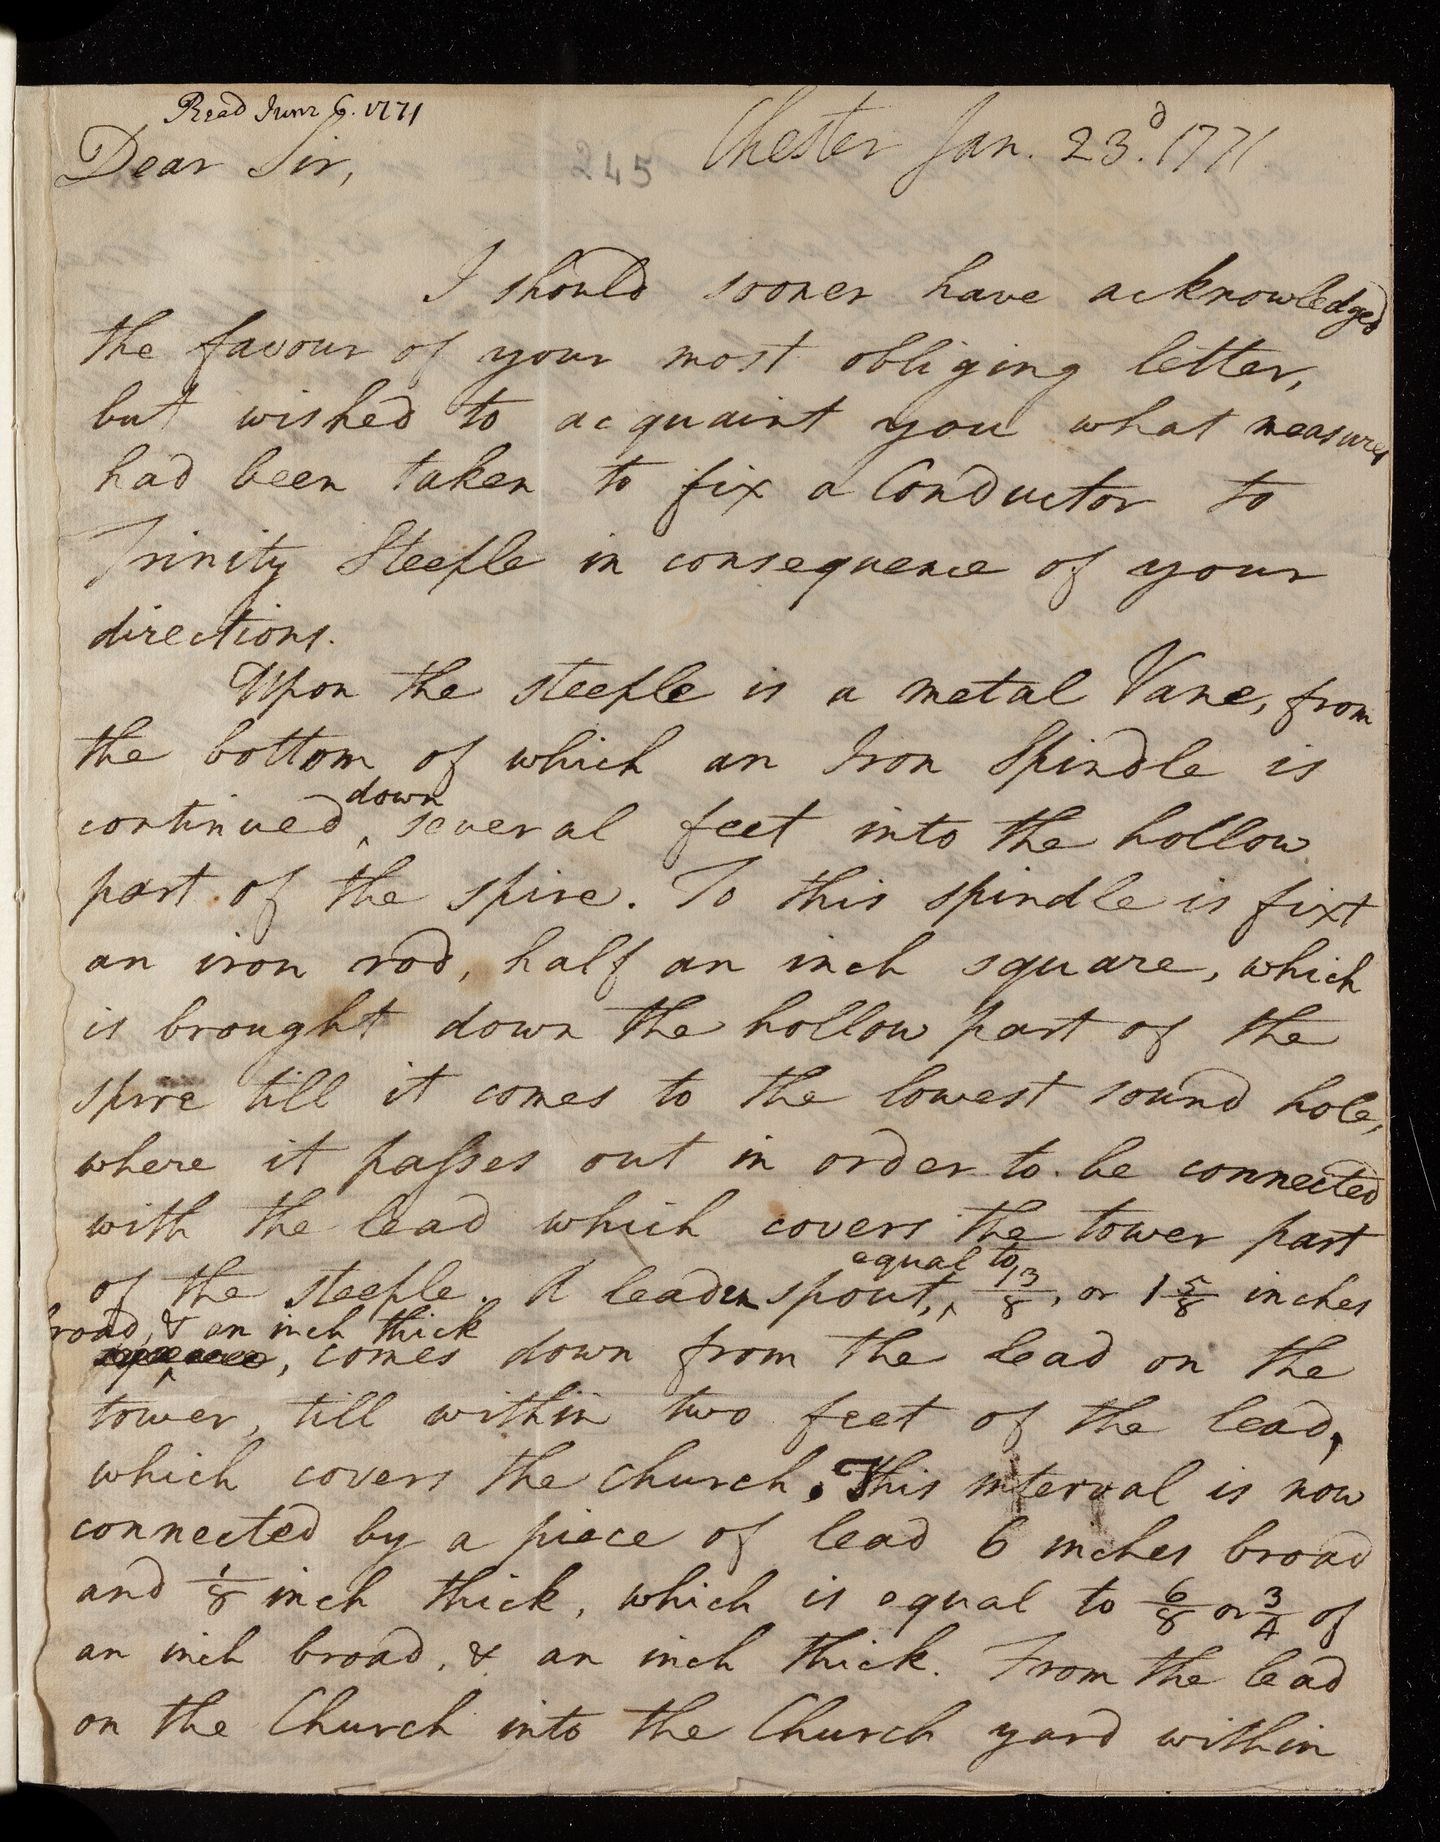 Read June 6. 1771
Chester Jan. 23d. 1771.
Dear Sir,
245
I should sooner have acknowledged
the favour of your most obliging letter,
but wished to acquaint you what measures
had been taken to fix a Conductor to
Trinity Steeple in consequence of your
directions.
Upon the steeple is a metal Vane, from
the bottom of which an Iron Spindle is
down
continued ‸ several feet into the hollow
part of the spire. To this spindle is fixt
an iron rod, half an inch square, which
is brought down the hollow part of the
spire till it comes to the lowest sound hole,
where it passes out in order to be connected
with the lead which covers the tower part
equal to
of the steeple. A leaden spout, ‸ 13/8, or 1 5/8 inches
broad, & an inch thick
, comes down from the lead on the
tower, till within two feet of the lead,
which covers the church. This interval is now
connected by a piece of lead 6 inches broad
and 1/8 inch thick, which is equal to 6/8 or 3/4 of
an inch broad, & an inch thick. From the lead
on the Church into the Church yard within